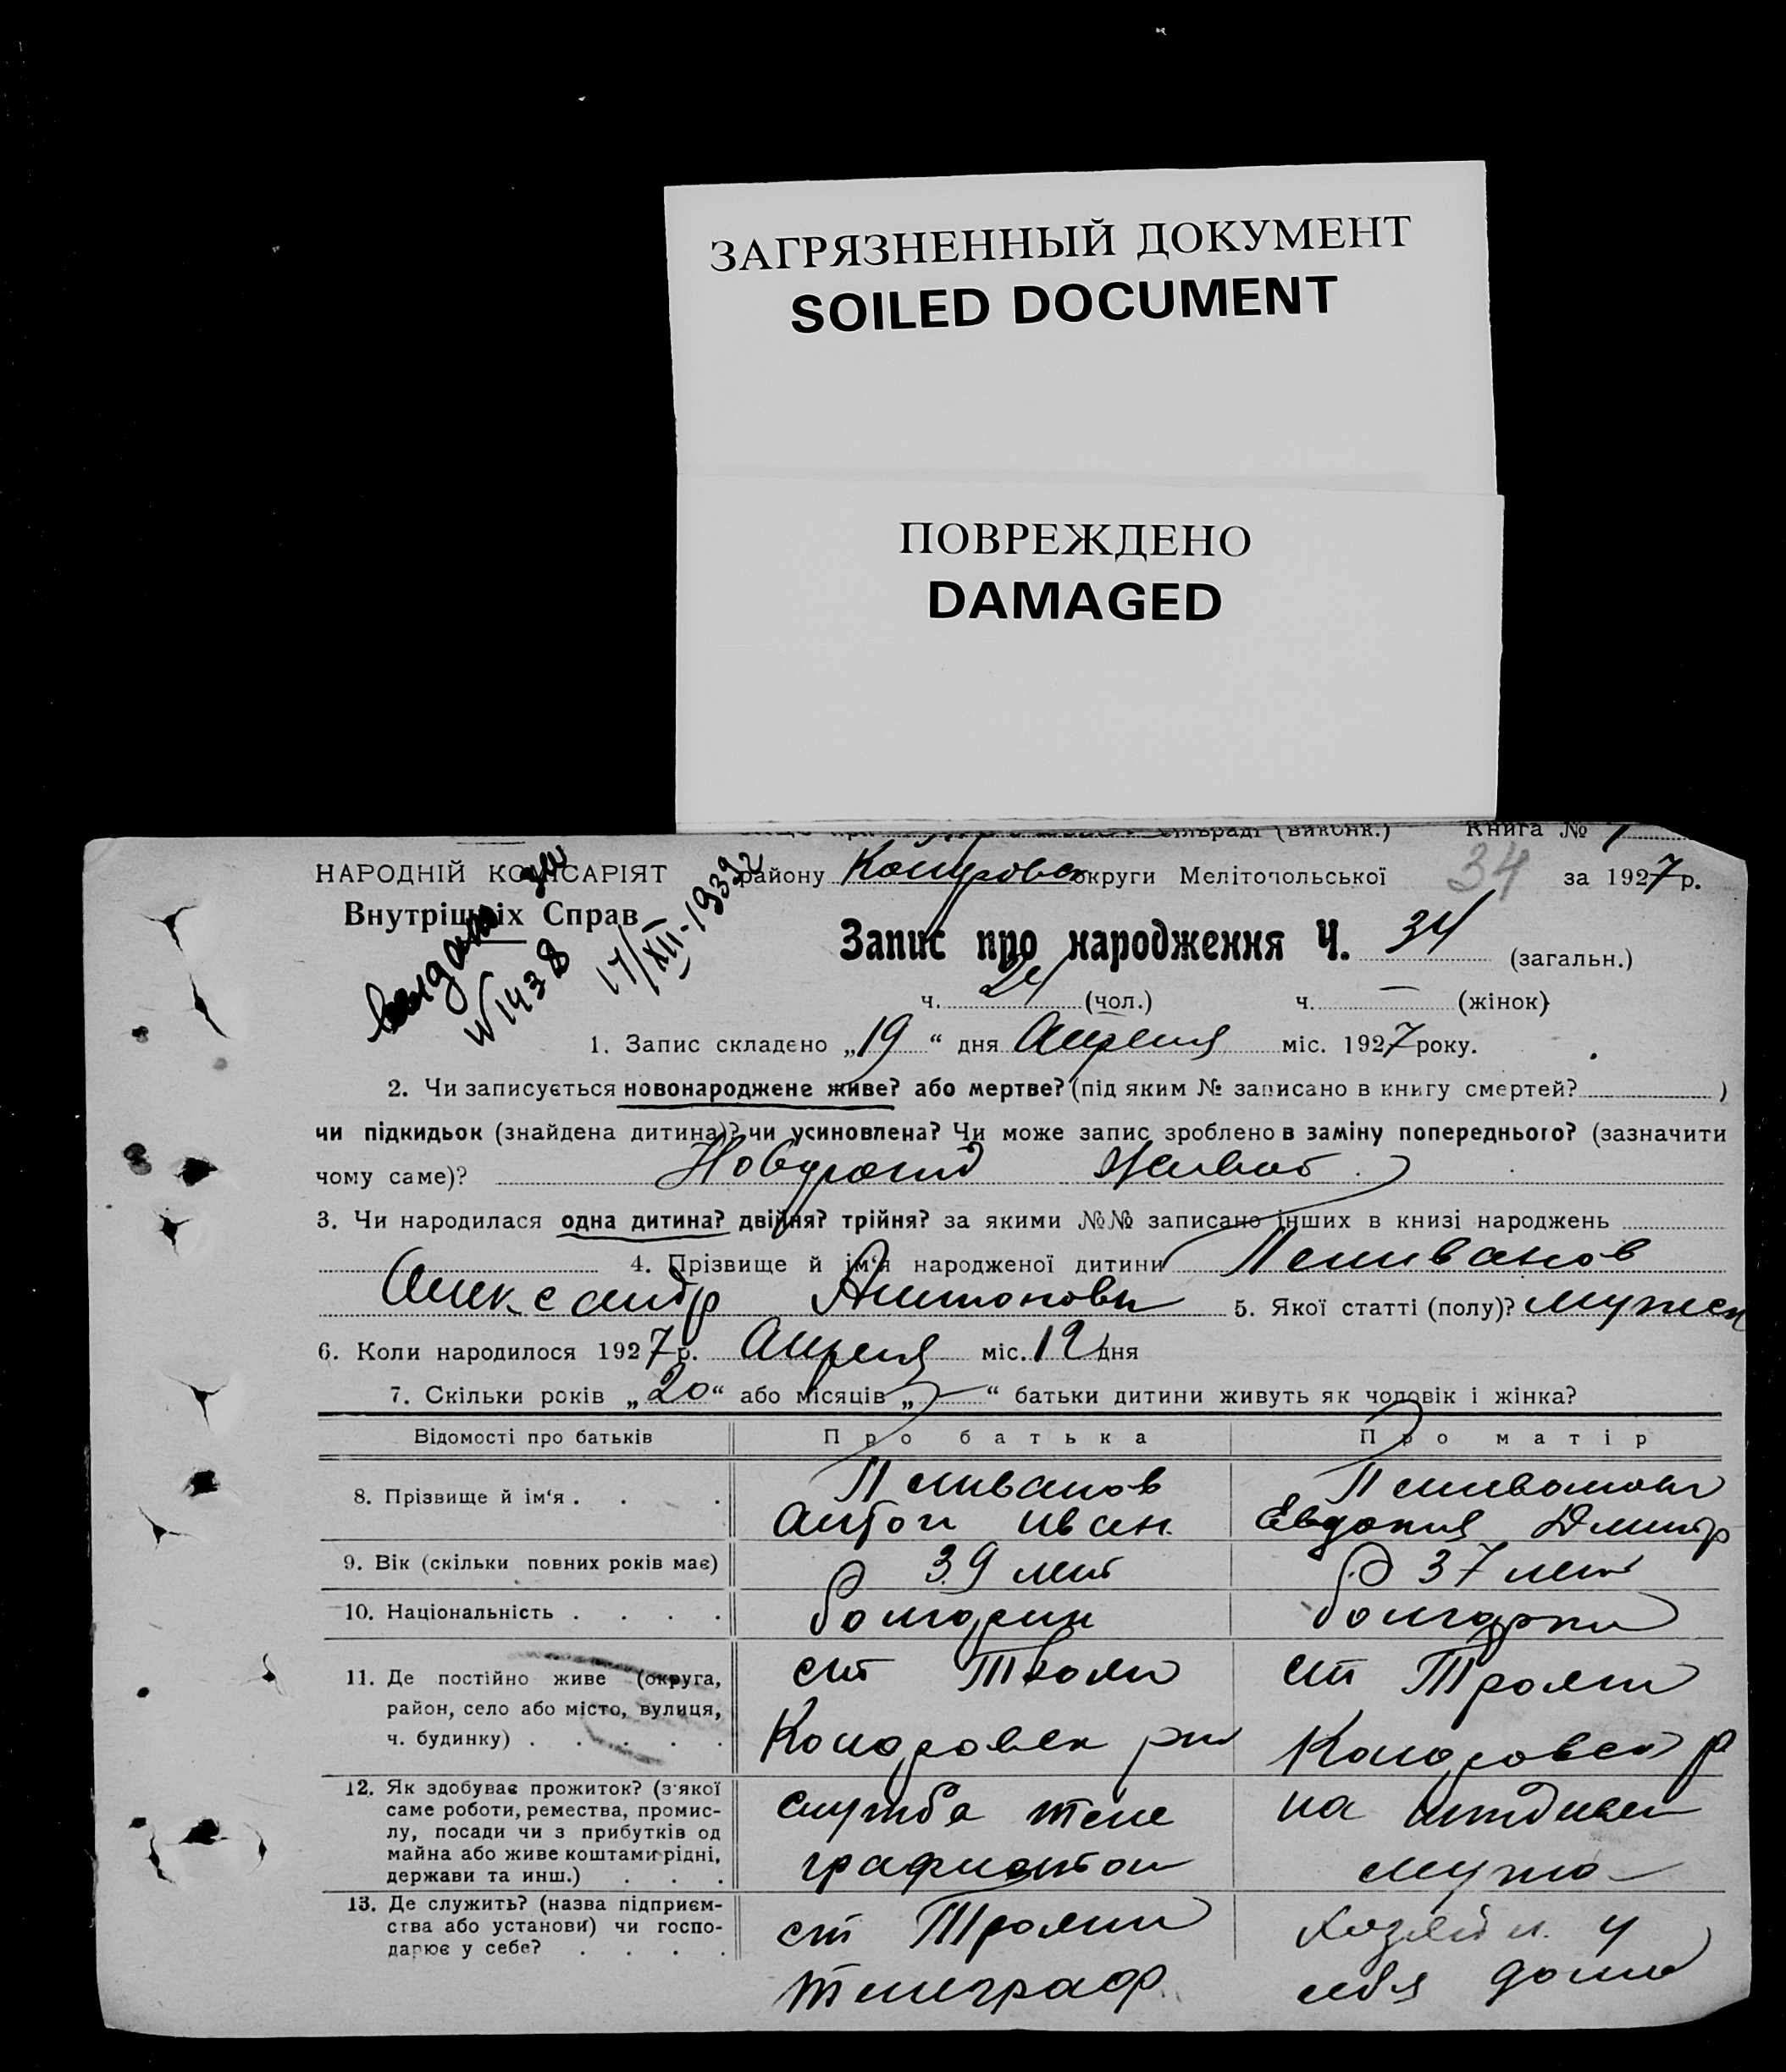 ЗАГРЯЗНЕННЫЙ ДОКУМЕНТ
SOILED DOCUMENT
ПОВРЕЖДЕНО
DAMAGED
сільраді (виконк.) Книга №
НАРОДНІЙ КОМІСАРІЯТ
Внутрішніх Справ
району округи Мелітопольської 34 за 1927 р.
№ 1438
17/XII-1939
Запис про народження Ч. 34 (загальн.)
ч. 24 (чол.) ч. — (жінок)
1. Запис складено „19“ дня Апреля міс. 1927 року.
2. Чи записується новонароджене живе? або мертве? (під яким № записано в книгу смертей? )
чи підкидьок (знайдена дитина)? чи усиновлена? Чи може запис зроблено в заміну попереднього? (зазначити
чому саме)?
3. Чи народилася одна дитина? двійня? трійня? за якими №№ записано інших в книзі народжень
4. Прізвище й ім'я народженої дитини Пеливанов
Александр Антонови 5. Якої статті (полу)? мужск
6. Коли народилося 1927 р. Апреля міс. 12 дня
7. Скільки років „20“ або місяців „—“ батьки дитини живуть як чоловік і жінка?
Відомості про батьків Про батька Про матір
8. Прізвище й ім'я . . . Пеливанов Пеливанова
Антон Иван. Евдокия Дмитр
9. Вік (скільки повних років має) 39 лет 37 лет
10. Національність . . . . болгарин болгарка
11. Де постійно живе (округа, ст Трояни ст Трояны
район, село або місто, вулиця,
ч. будинку) . . . . .
12. Як здобуває прожиток? (з якої
саме роботи, ремества, промис- служба теле на иждивен
лу, посади чи з прибутків од
майна або живе коштами рідні, графистом мужа
держави та инш.) . . .
13. Де служить? (назва підприєм-
ства або установи) чи госпо- ст Трояны Хозяйн. у
дарює у себе? . . . .
телеграф. себя дома